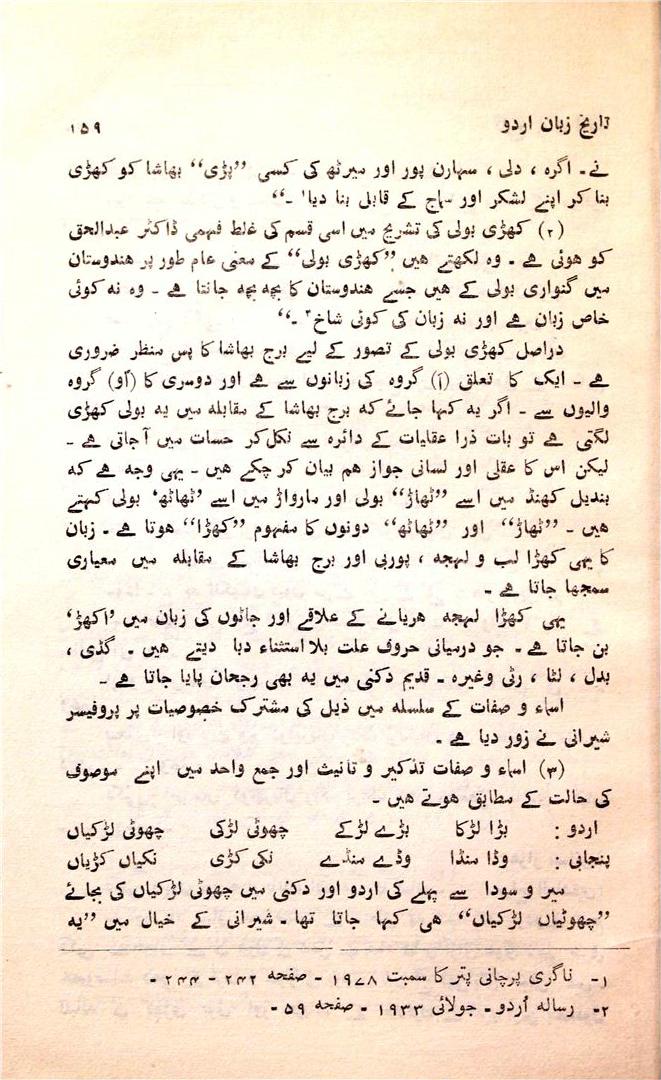 تاریخ زبان اردو ۱۵۹
نے۔ اگرہ ، دلی ، سہارن پور اور میرٹھ کی کسی ”پڑی“ بھاشا کو کھڑی
بنا کر اپنے لشکر اور سماج کے قابل بنا دیا۱ ۔“
(۲) کھڑی بولی کی تشریح میں اسی قسم کی غلط فہمی ڈاکٹر عبدالحق
کو ہوئی ہے ۔ وہ لکھتے ہیں ”کھڑی بولی“ کے معنی عام طور پر ہندوستان
میں گنواری بولی کے ہیں جسے ہندوستان کا بچہ بچہ جانتا ہے ۔ وہ نہ کوئی
خاص زبان ہے اور نہ زبان کی کوئی شاخ۲ ۔“
دراصل کھڑی بولی کے تصور کے لیے برج بھاشا کا پس منظر ضروری
ہے ۔ ایک کا تعلق (آ) گروہ کی زبانوں سے ہے اور دوسری کا (أو) گروہ
والیوں سے ۔ اگر یہ کہا جائے کہ برج بھاشا کے مقابلہ میں یہ بولی کھڑی
لگتی ہے تو بات ذرا عقلیات کے دائرہ سے نکل کر حسیات میں آ جاتی ہے ۔
لیکن اس کا عقلی اور لسانی جواز ہم بیان کر چکے ہیں ۔ یہی وجہ ہے کہ
بندیل کھنڈ میں اسے ”ٹھاڑ“ بولی اور مارواڑ میں اسے ’ٹھاٹھ‘ بولی کہتے
ہیں ۔ ”ٹھاڑ“ اور ”ٹھاٹھ“ دونوں کا مفہوم ”کھڑا“ ہوتا ہے ۔ زبان
کا یہی کھڑا لب و لہجہ ، پوربی اور برج بھاشا کے مقابلہ میں معیاری
سمجھا جاتا ہے ۔
یہی کھڑا لہجہ ہریانے کے علاقے اور جاٹوں کی زبان میں ’اکھڑ‘
بن جاتا ہے ۔ جو درمیانی حروف علت بلا استثناء دبا دیتے ہیں ۔ گڈی ،
بدل ، لٹا ، رٹی وغیرہ ۔ قدیم دکنی میں یہ بھی رجحان پایا جاتا ہے ۔
اسماء و صفات کے سلسلہ میں ذیل کی مشترک خصوصیات پر پروفیسر
شیرانی نے زور دیا ہے ۔
(۳) اسماء و صفات تذکیر و تانیث اور جمع واحد میں اپنے موصوف
کی حالت کے مطابق ہوتے ہیں ۔
اردو : بڑا لڑکا بڑے لڑکے چھوٹی لڑکی چھوٹی لڑکیاں
پنجابی : وڈا منڈا وڈے منڈے نکی کڑی نکیاں کڑیاں
میر و سودا سے پہلے کی اردو اور دکنی میں چھوٹی لڑکیاں کی بجائے
”چھوٹیاں لڑکیاں“ ہی کہا جاتا تھا ۔ شیرانی کے خیال میں ”یہ
۱۔ ناگری پرچانی پتر کا سمبت ۱۹۷۸ ۔ صفحہ ۲۴۲ ۔ ۲۴۴ ۔
۲۔ رسالہ اُردو ۔ جولائی ۱۹۳۳ ۔ صفحہ ۵۹ ۔